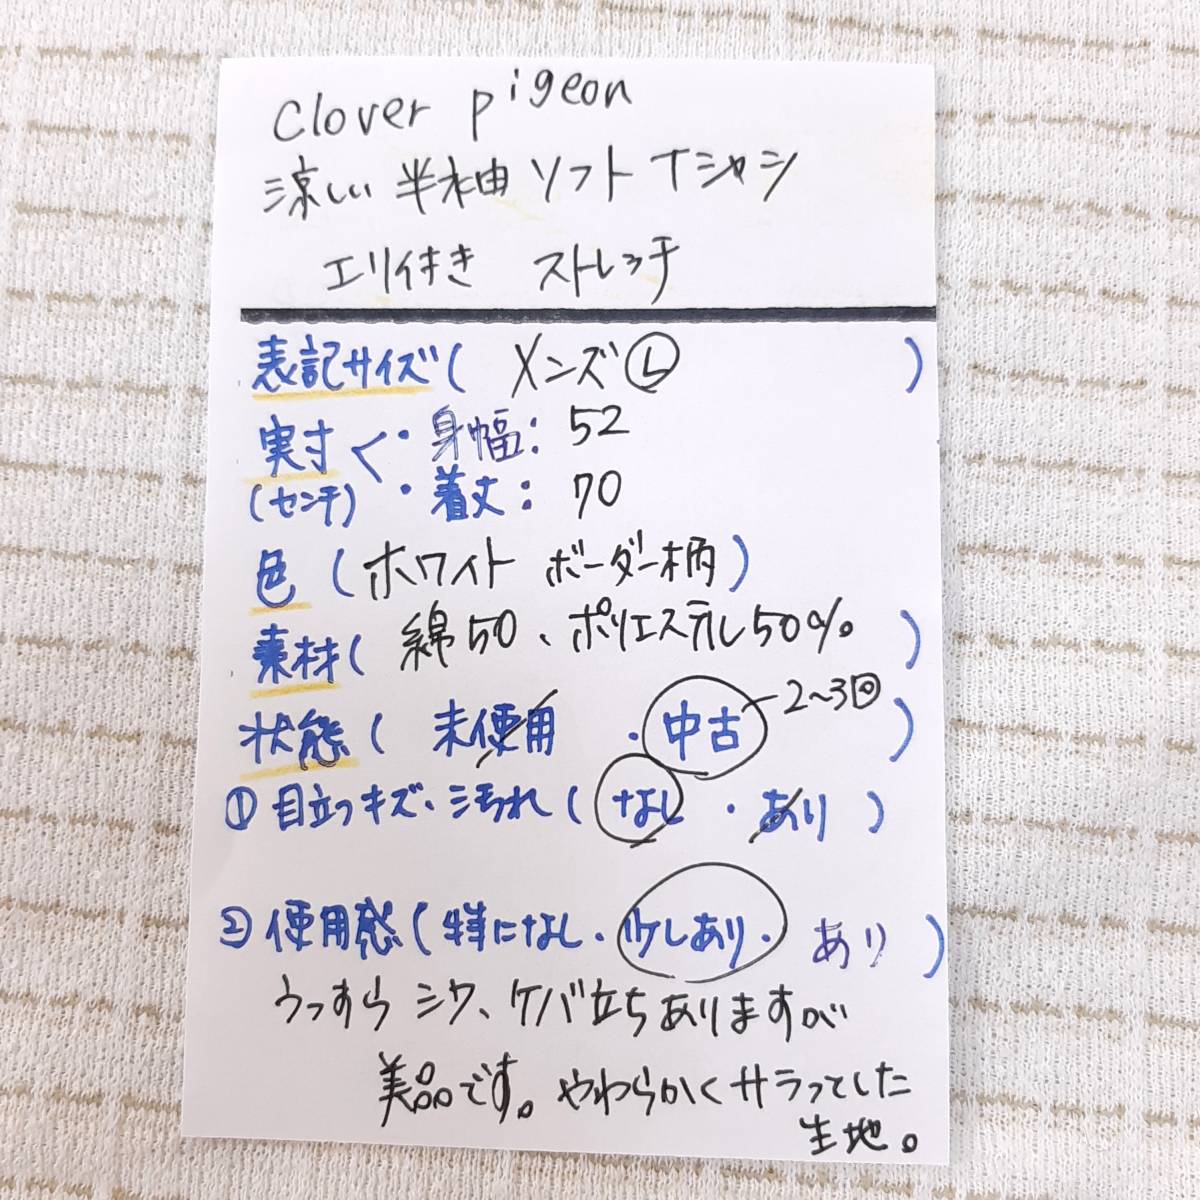 clover pigeon
涼しい 半袖 ソフト Tシャシ
エリ付き ストレッチ
表記サイズ( メンズ Ⓛ )
実寸く ・身幅: 52
(センチ) ・着丈: 70
色 (ホワイト ボーダー柄)
素材( 綿50、ポリエステル50%。 )
状態( 未使用 ・ 中古 2~3回 )
①目立つキズ・汚れ( なし ・ あり )
②使用感(特になし・少しあり・ あり )
うっすら シワ、ケバ立ちありますが
美品です。やわらかくサラってした
生地。